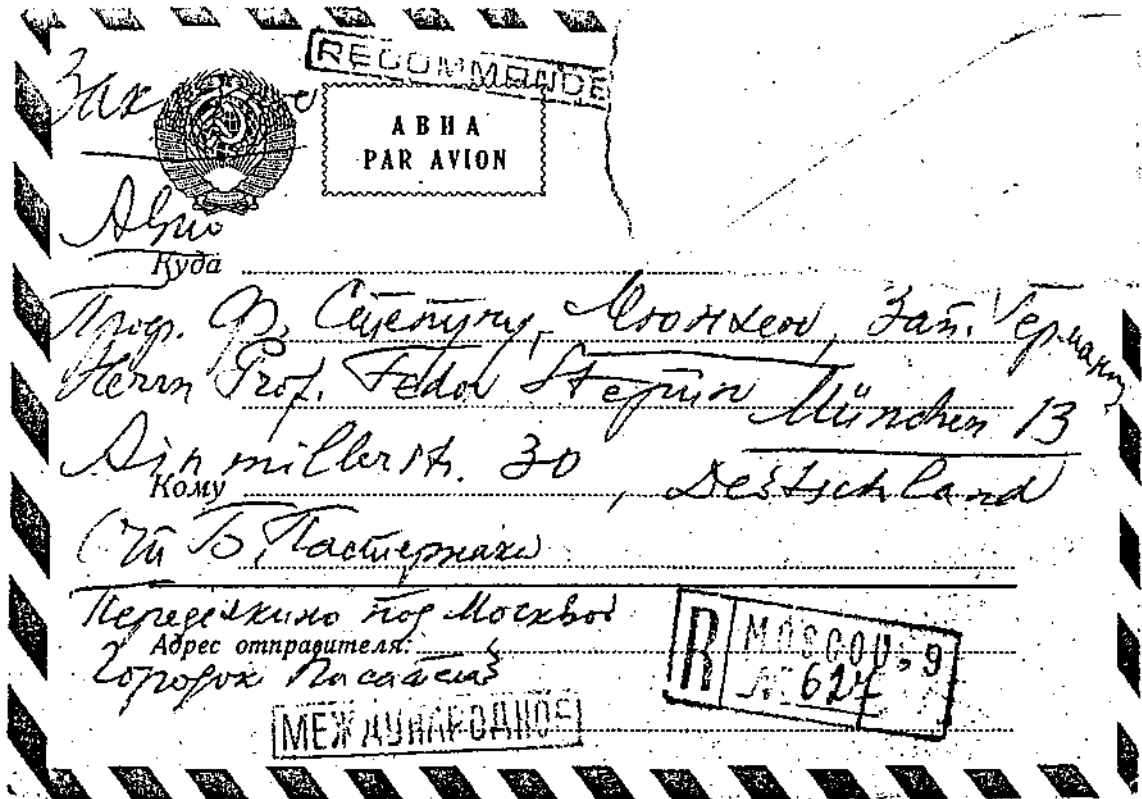 RECOMMANDE
Заказное
АВИА
PAR AVION
Авио
Куда
Проф. Ф. Степуну, Мюнхен, Зап. Германия
Herrn Prof. Fedor Stepun München 13
Ainmillerstr. 30, Deutschland
Кому
От Б. Пастернака
Переделкино под Москвой
Адрес отправителя:
Городок Писателей
R MOSCOU, 9
№ 624
МЕЖДУНАРОДНОЕ